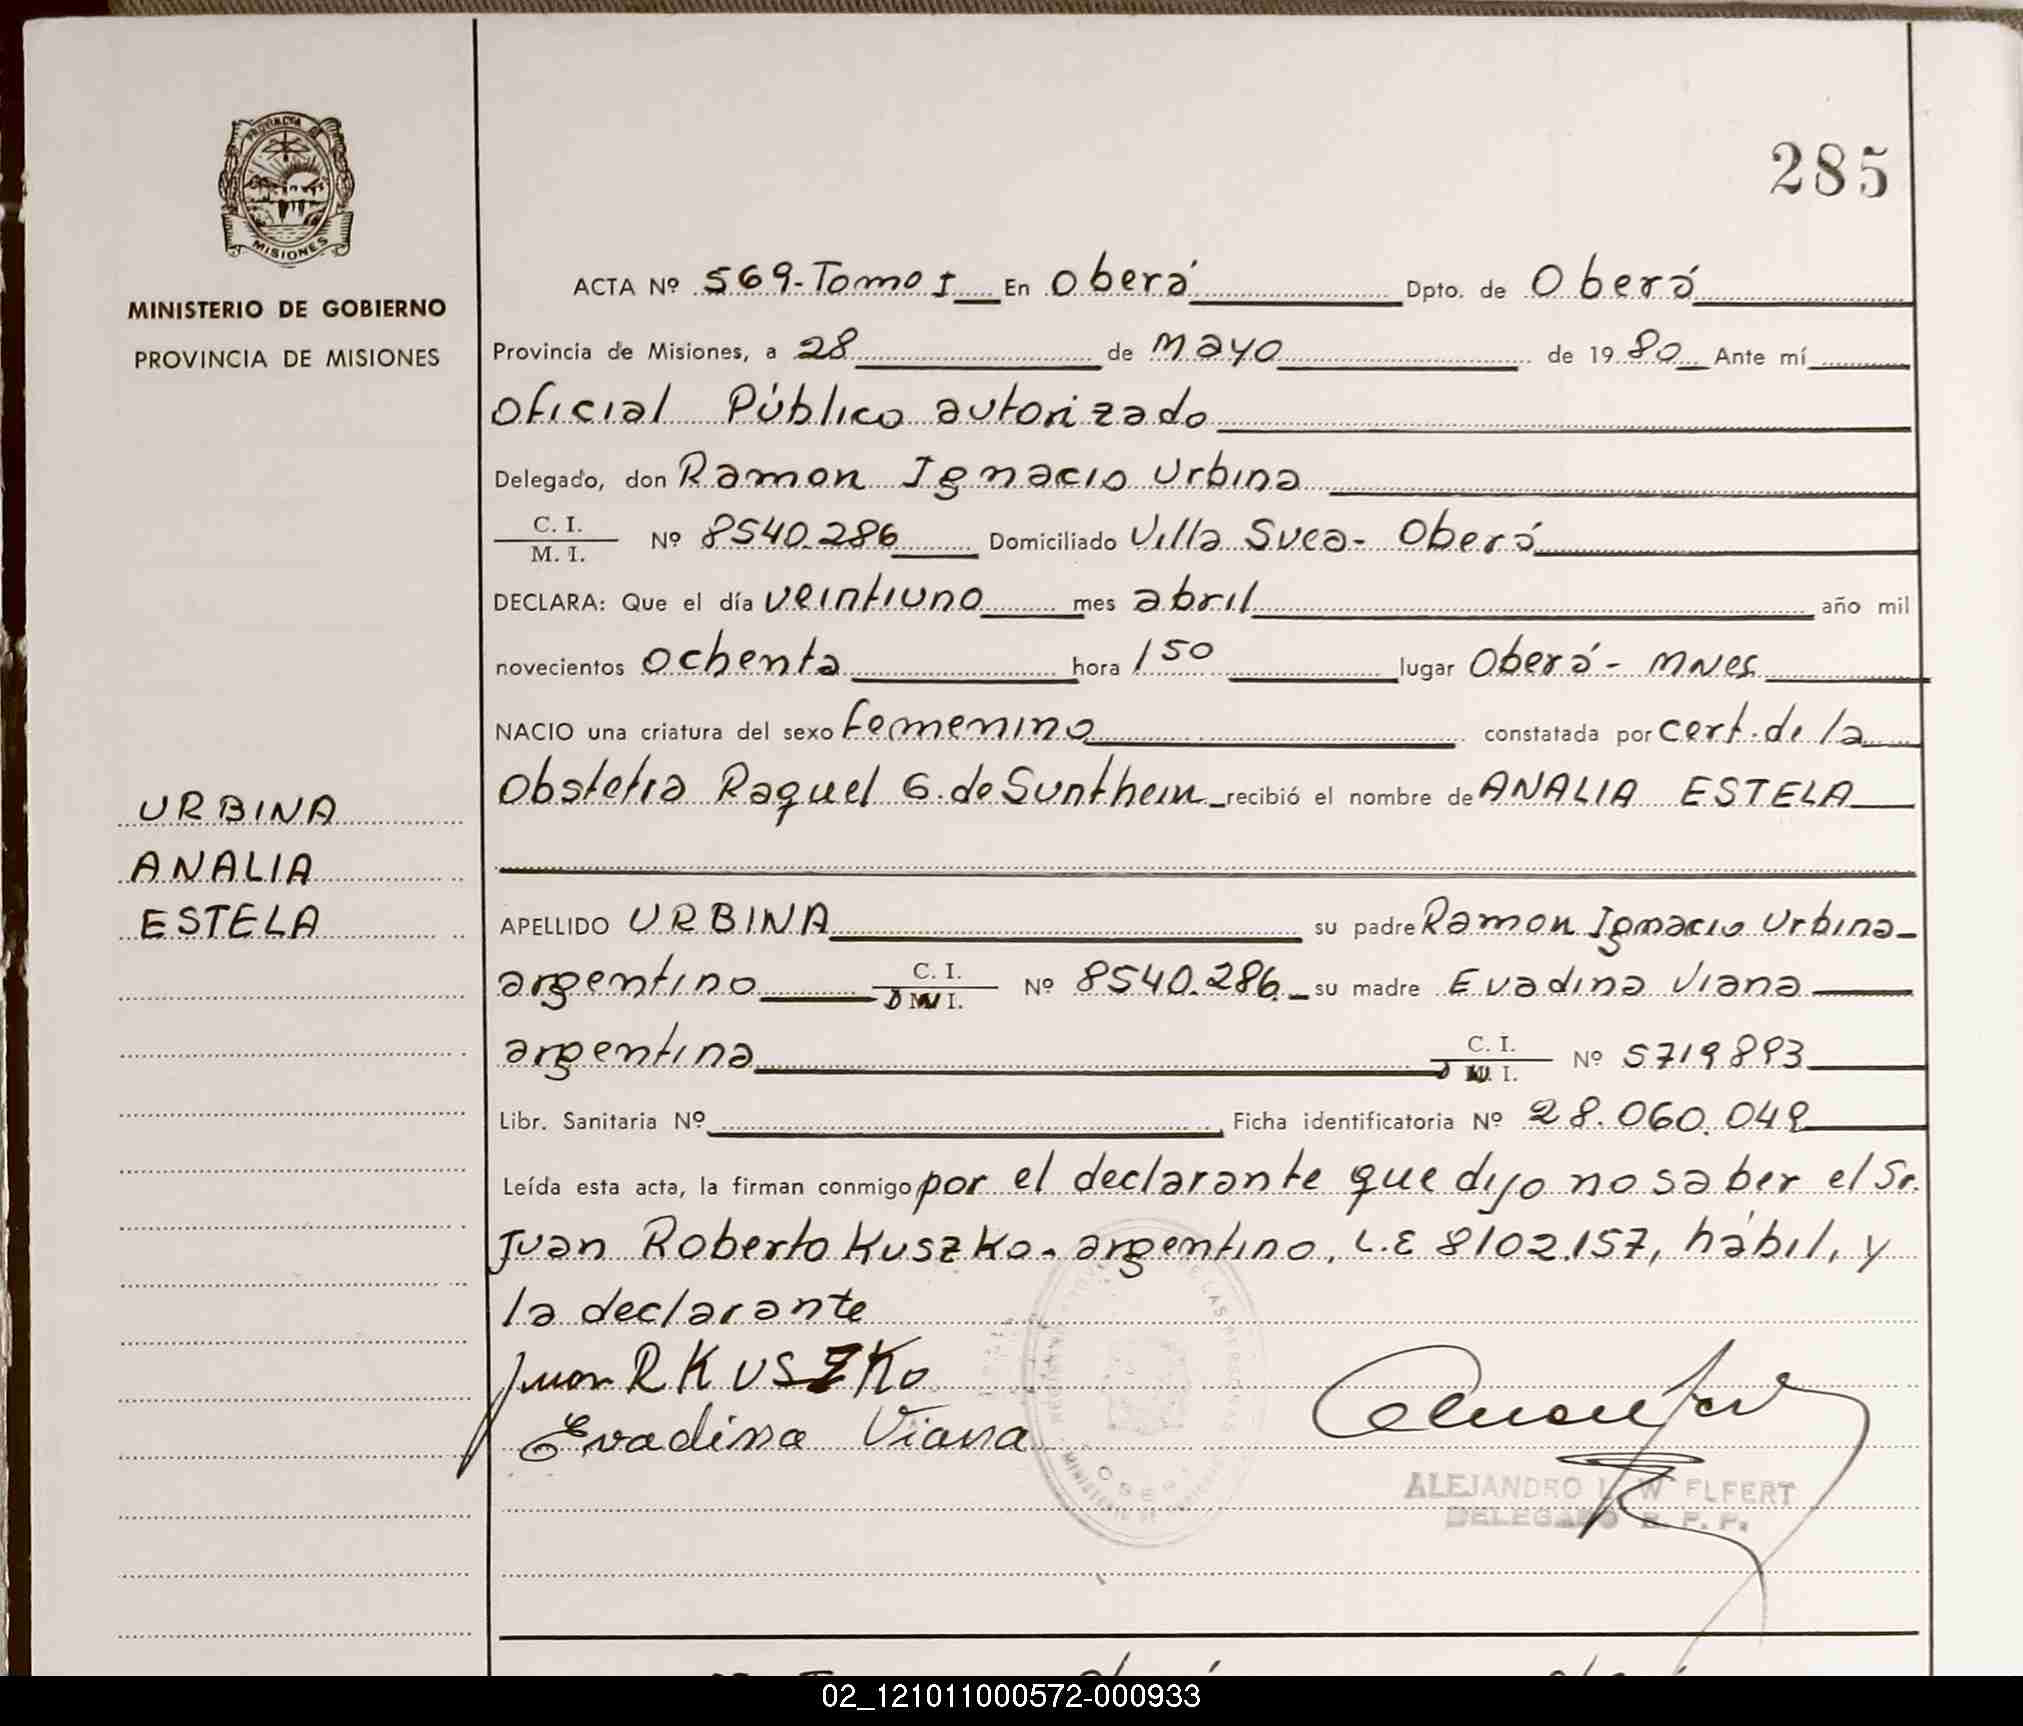 285
PROVINCIA
MISIONES
MINISTERIO DE GOBIERNO
PROVINCIA DE MISIONES
URBINA
ANALIA
ESTELA
ACTA Nº 569-Tomo I En Oberá Dpto. de Oberá
Provincia de Misiones, a 28 de mayo de 1980 Ante mí
Oficial Público autorizado
Delegado, don Ramon Ignacio Urbina
C. I.
M. I. Nº 8540.286 Domiciliado Villa Svea- Oberá
DECLARA: Que el día veintiuno mes abril año mil
novecientos ochenta hora 150 lugar Oberá- MNes.
NACIO una criatura del sexo femenino constatada por cert. de la
Obstetra Raquel G. de Sunthein recibió el nombre de ANALIA ESTELA
APELLIDO URBINA su padre Ramon Ignacio Urbina
argentino C. I. Nº 8540.286 su madre Evadina Viana
argentina C. I. Nº 5719893
Libr. Sanitaria Nº Ficha identificatoria Nº 28.060.049
Leída esta acta, la firman conmigo por el declarante que dijo no saber el Sr.
Juan Roberto Kuszko- argentino, L.E 8102.157, hábil, y
la declarante
Juan R KUSZKo
Evadina Viana
ALEJANDRO
DELEGADO R. P. P.
02_121011000572-000933